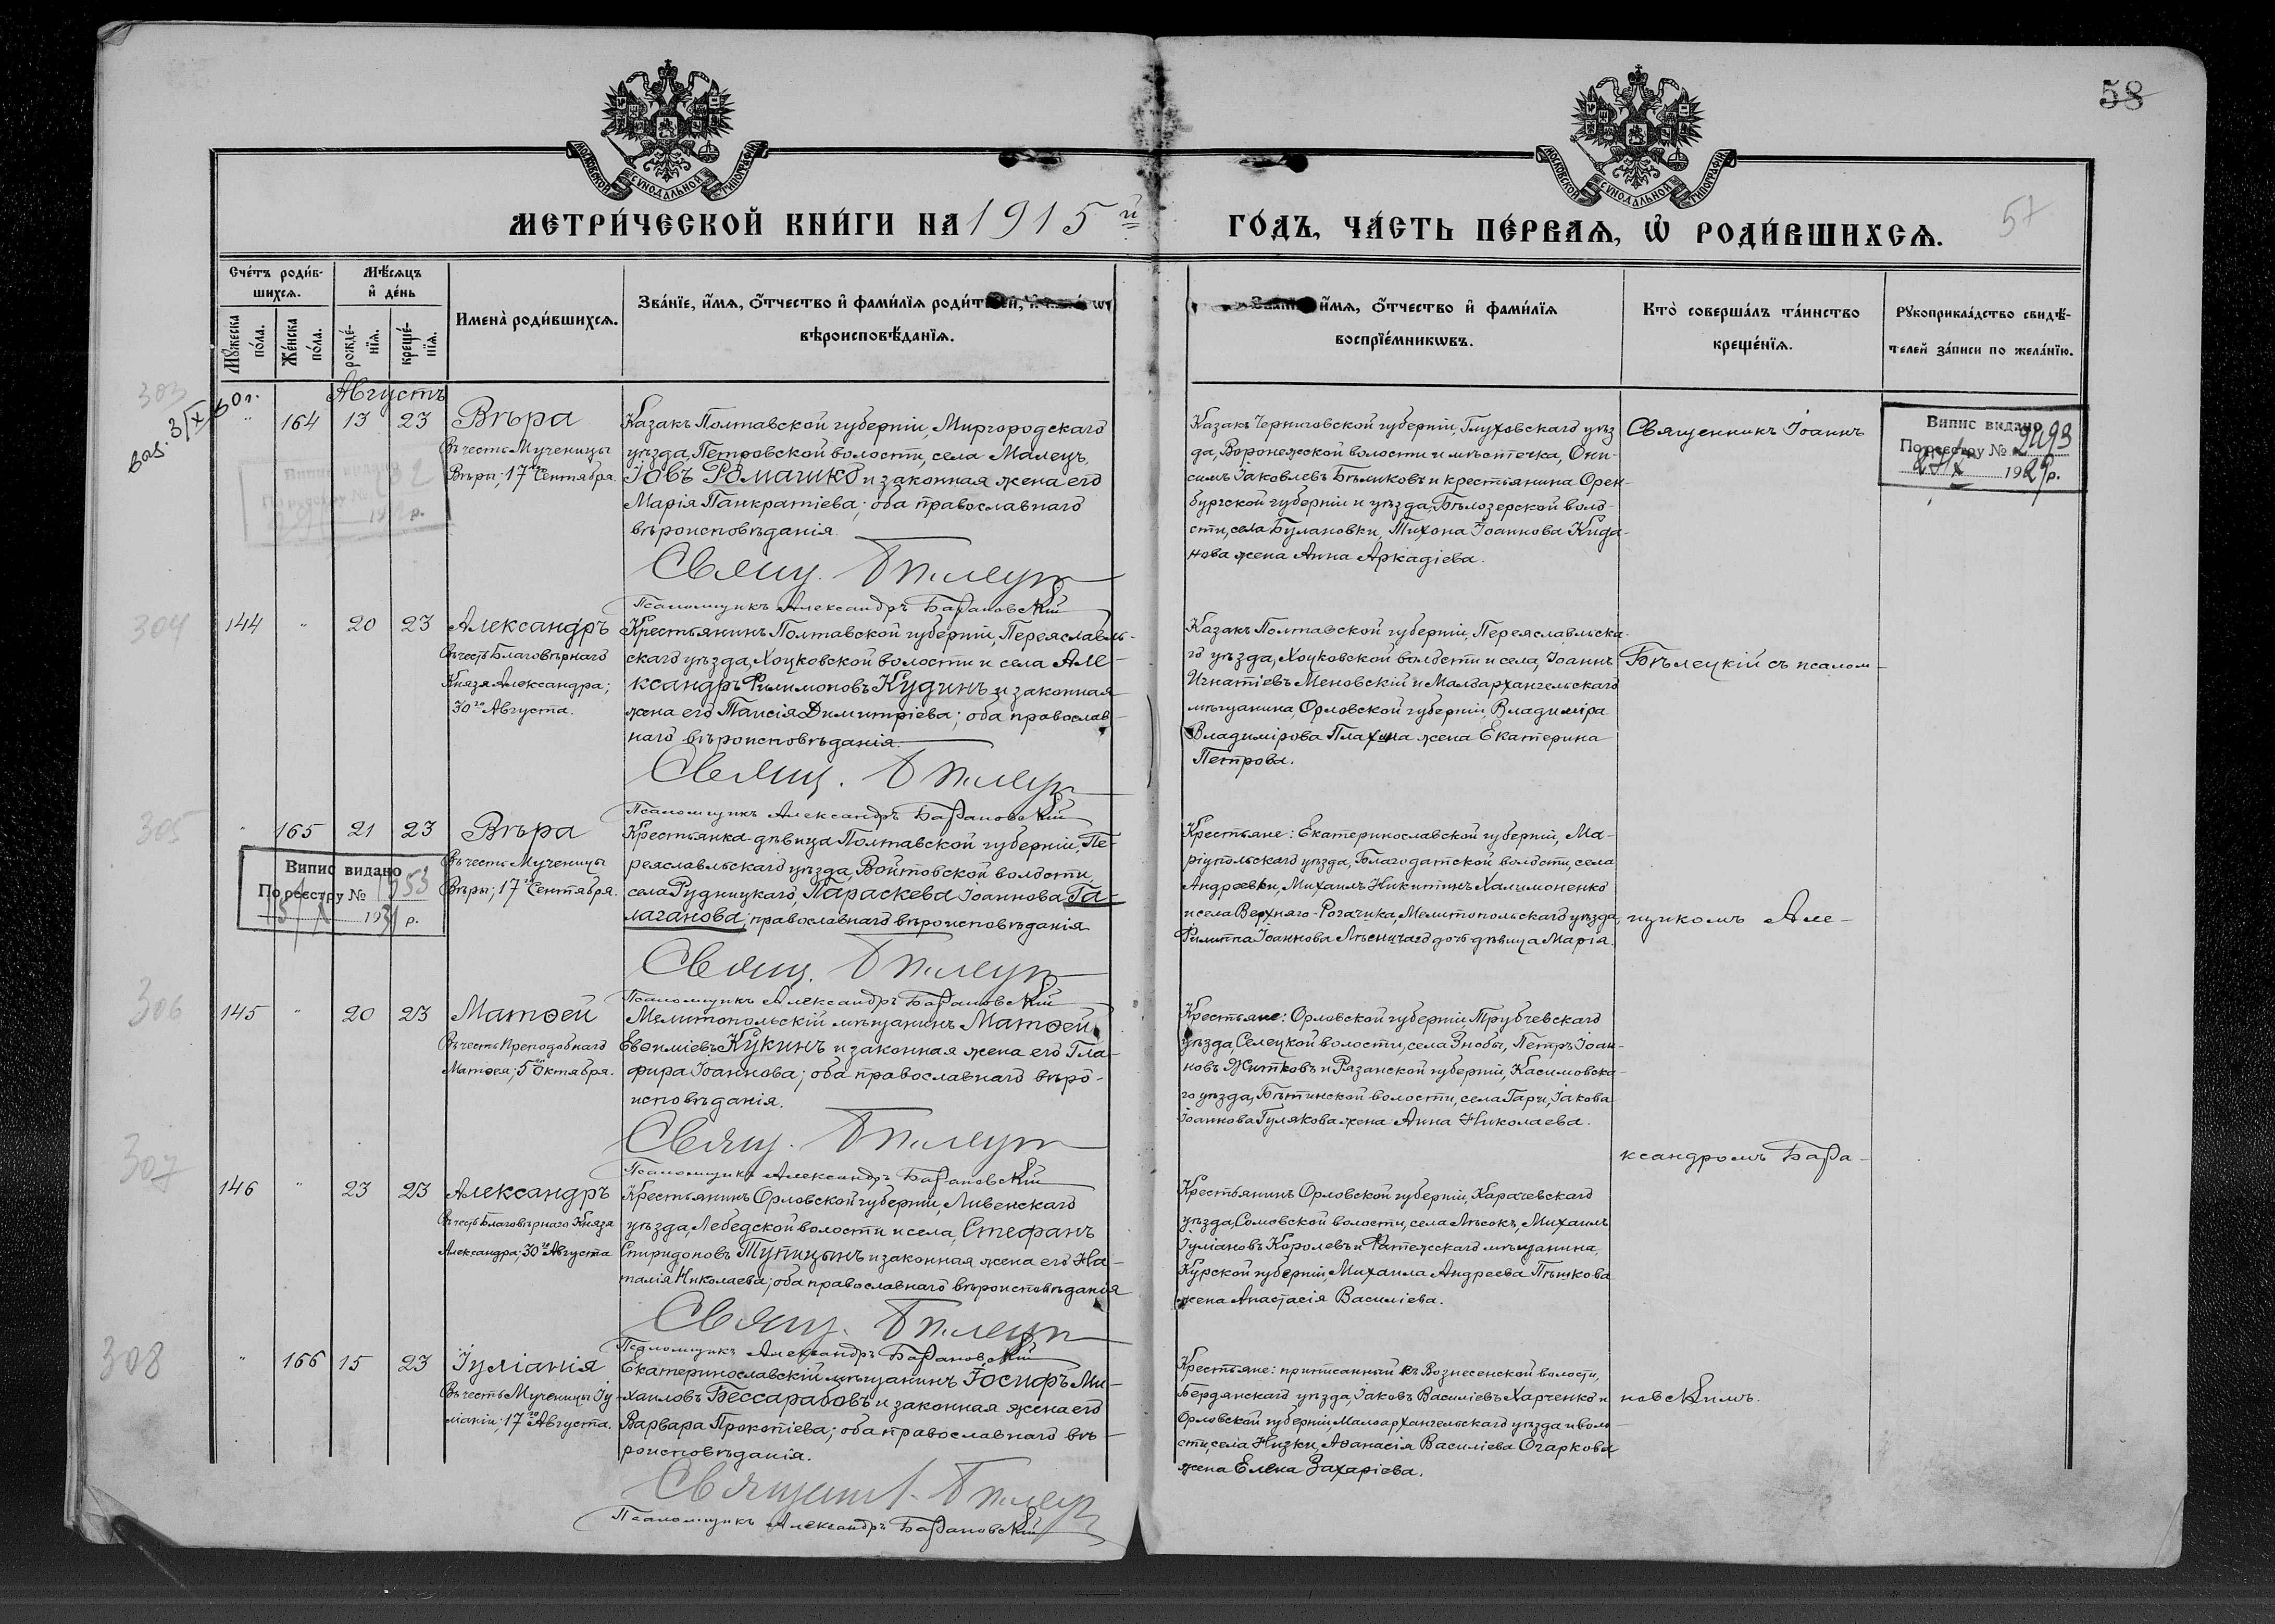 58
57
МОСКОВСКОЙ СѴНОДАЛЬНОЙ ТИПОГРАФІИ
МОСКОВСКОЙ СѴНОДАЛЬНОЙ ТИПОГРАФІИ
МЕТРИ́ЧЕСКОЙ КНИ́ГИ НА 1915й
ГО́ДЪ, ЧА́СТЬ ПЕ́РВАѦ, Ѡ҆ РОДИ́ВШИХСѦ.
Сче́тъ роди́в-
шихсѧ.
Мѣ́сѧцъ
и҆ де́нь
Мꙋ́жеска
по́ла.
Же́нска
по́ла.
рожде́-
нїѧ.
креще́-
нїѧ.
Имена̀ роди́вшихсѧ.
Зва́нїе, и҆́мѧ, ѻ҆́тчество и҆ фами́лїѧ роди́т
вѣроисповѣ́данїѧ.
и҆́мѧ, ѻ҆́тчество и҆ фами́лїѧ
воспрїе́мникѡвъ.
Кто̀ соверша́лъ та́инство
креще́нїѧ.
Рꙋкоприкла́дство свидѣ́-
телей за́писи по жела́нїю.
303
Августъ
" 164 13 23 Вѣра
Въ честь Мученицы
Вѣры; 17го Сентября.
Казакъ Полтавской губерніи, Миргородскаго
уѣзда, Петровской волости, села Малецъ,
Іовъ Ромашко и законная жена его
Марія Панкратіева; оба православнаго
вѣроисповѣданія.
Свящ.
Псаломщикъ Александръ Барановскій
Казакъ Черниговской губерніи, Глуховскаго уѣз
да, Воронежской волости и мѣстечка, Они-
симъ Іаковлевъ Бѣликовъ и крестьянина Орен-
бургской губерніи и уѣзда, Бѣлозерской воло-
сти, села Булановки, Тихона Іоаннова Кида-
нова жена Анна Аркадіева.
Священникъ Іоаннъ
Випис видано
По реєстру № 2493
1929р.
Випис видано
По реєстру №
304
144 " 20 23 Александръ
Въ честь Благовѣрнаго
Князя Александра;
30го Августа.
Крестьянинъ Полтавской губерніи, Переяславль-
скаго уѣзда, Хоцковской волости и села Але-
ксандръ Филимоновъ Кудинъ и законная
жена его Таисія Димитріева; оба православ-
наго вѣроисповѣданія.
Свящ.
Псаломщикъ Александръ Барановскій
Казакъ Полтавской губерніи, Переяславльска-
го уѣзда, Хоцковской волости и села, Іоаннъ
Игнатіевъ Меновскій и Малоархангельскаго
мѣщанина, Орловской губерніи, Владиміра
Владимірова Плахина жена Екатерина
Петрова.
Бѣлецкій съ псалом-
305
" 165 21 23 Вѣра
Въ честь Мученицы
Вѣры; 17го Сентября.
Випис видано
По реєстру № 1953
1931 р.
Крестьянка-дѣвица Полтавской губерніи, Пе-
реяславльскаго уѣзда, Войтовской волости,
села Рудницкаго, Параскева Іоаннова Га-
лаганова, православнаго вѣроисповѣданія
Свящ.
Псаломщикъ Александръ Барановскій
Крестьяне: Екатеринославской губерніи, Ма-
ріупольскаго уѣзда, Благодатской волости, села
Андреевки, Михаилъ Никитинъ Халимоненко
и села Верхняго-Рогачика, Мелитопольскаго уѣзда,
Филиппа Іоаннова дочь дѣвица Марія.
щикомъ Але-
306
145 " 20 23 Матѳей
Въ честь Преподобнаго
Матѳея; 5го Октября.
Мелитопольскій мѣщанинъ Матѳей
Евѳиміевъ Кукинъ и законная жена его Гла-
фира Іоаннова; оба православнаго вѣро-
исповѣданія.
Свящ.
Псаломщикъ Александръ Барановскій
Крестьяне: Орловской губерніи, Трубчевскаго
уѣзда, Селецкой волости, села Знобы, Петръ Іоан-
новъ Житковъ и Рязанской губерніи, Касимовска-
го уѣзда, Бѣтинской волости, села Гари, Іакова
Іоаннова Гулякова жена Анна Николаева.
ксандромъ Бара-
307
146 " 23 23 Александръ
Въ честь Благовѣрнаго Князя
Александра; 30го Августа
Крестьянинъ Орловской губерніи, Ливенскаго
уѣзда, Лебедской волости и села, Стефанъ
Спиридоновъ Тупицынъ и законная жена его На-
талія Николаева; оба православнаго вѣроисповѣданія
Свящ.
Псаломщикъ Александръ Барановскій
Крестьянинъ Орловской губерніи, Карачевскаго
уѣзда, Сомовской волости, села Лѣсокъ, Михаилъ
Іуліановъ Королевъ и Фатежскаго мѣщанина,
Курской губерніи, Михаила Андреева Пѣшкова
жена Анастасія Василіева.
308
" 166 15 23 Іуліанія
Въ честь Мученицы Іу-
ліаніи; 17го Августа.
Екатеринославскій мѣщанинъ Іосифъ Ми-
хаиловъ Бессарабовъ и законная жена его
Варвара Прокопіева; оба православнаго вѣ-
роисповѣданія.
Псаломщикъ Александръ Барановскій
Крестьяне: приписанный къ Вознесенской волости,
Бердянскаго уѣзда, Іаковъ Василіевъ Харченко и
Орловской губерніи, Малоархангельскаго уѣзда и воло-
сти, села Низки, Аѳанасія Василіева Огаркова
жена Елена Захаріева.
новскимъ.